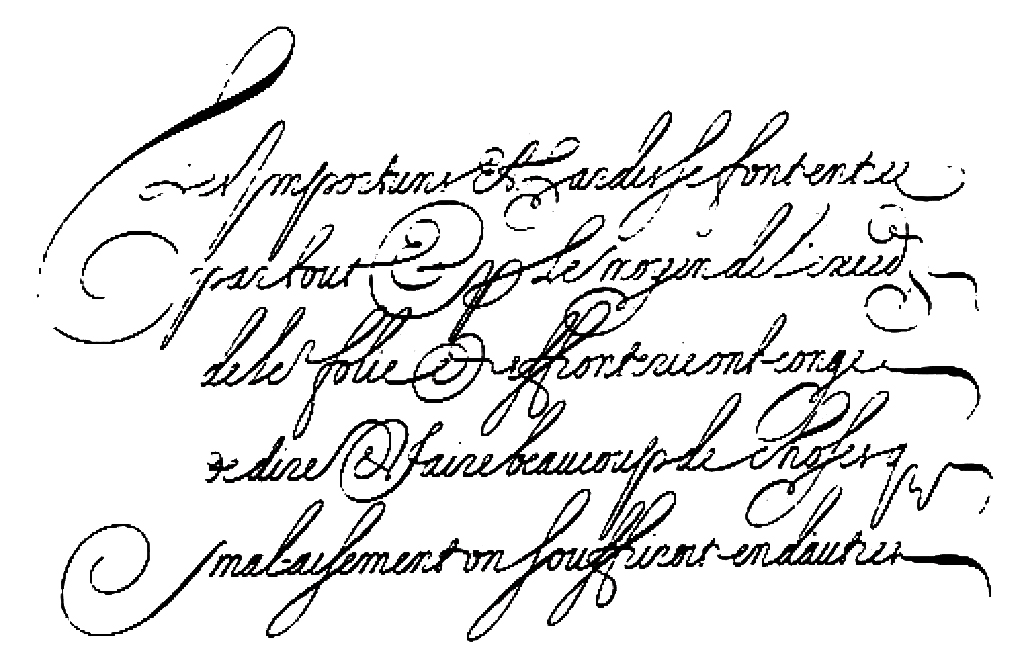 Les Importuns Et hardis se font entree
par tout Et Le moyen de
de folie et effronterie ont conge
de dire Et faire beaucoup de choses
malaisement on souffriroit en dautres